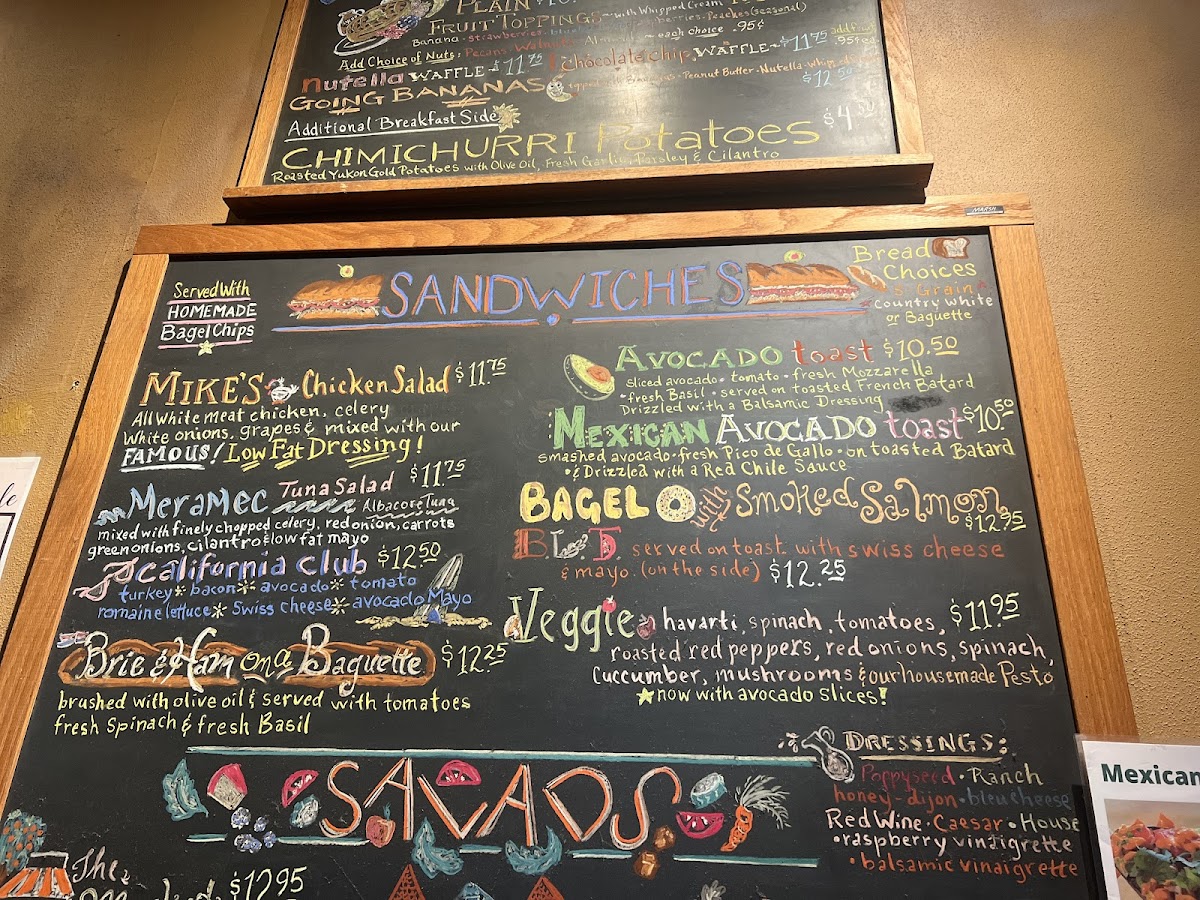 PLAIN
FRUIT TOPPINGS with Whipped Cream
Banana • Strawberries • Peaches (seasonal)
each choice .95¢
Add Choice of Nuts: Pecans • Walnuts
Nutella WAFFLE $11.75 chocolate chip WAFFLE $11.75
GOING BANANAS Peanut Butter • Nutella $12.50
Additional Breakfast Side
CHIMICHURRI Potatoes $4.50
Roasted Yukon Gold Potatoes with Olive Oil, Fresh Garlic, Parsley & Cilantro
MARSH
Served With
HOMEMADE
Bagel Chips
SANDWICHES
Bread
Choices
Grain
Country white
or Baguette
MIKE'S Chicken Salad $11.75
All white meat chicken, celery
white onions, grapes & mixed with our
FAMOUS! Low Fat Dressing!
Meramec Tuna Salad $11.75
Albacore Tuna
mixed with finely chopped celery, red onion, carrots
green onions, cilantro & low fat mayo
California Club $12.50
turkey * bacon * avocado * tomato
romaine lettuce * Swiss cheese * avocado Mayo
Brie & Ham on a Baguette $12.25
brushed with olive oil & served with tomatoes
fresh spinach & fresh Basil
AVOCADO toast $10.50
sliced avocado • tomato • fresh Mozzarella
• fresh Basil • served on toasted French Batard
Drizzled with a Balsamic Dressing
MEXICAN AVOCADO toast $10.50
smashed avocado • fresh Pico de Gallo • on toasted Batard
• & Drizzled with a Red Chile Sauce
BAGEL with Smoked Salmon
$12.95
B.L.T. served on toast with swiss cheese
& mayo. (on the side) $12.25
Veggie havarti, spinach, tomatoes, $11.95
roasted red peppers, red onions, spinach,
Cuccumber, mushrooms & our housemade Pesto
now with avocado slices!
SALADS
DRESSINGS:
Poppyseed • Ranch
honey-dijon • bleu cheese
Red Wine • Caesar • House
• raspberry vinaigrette
• balsamic vinaigrette
The
$12.95
Mexican